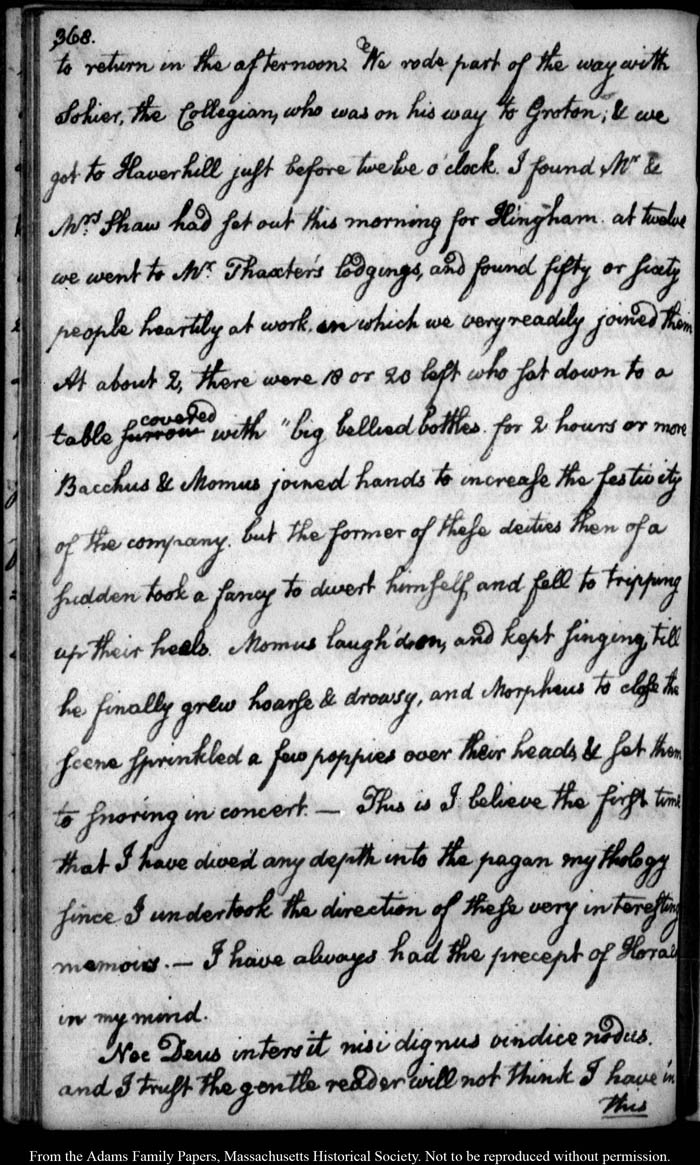 368.
to return in the afternoon. We rode part of the way with
Sohier, the Collegian, who was on his way to Groton; & we
got to Haverhill just before twelve o'clock. I found Mr &
Mrs Shaw had set out this morning for Hingham. at twelve
we went to Mr. Thaxter's lodgings, and found fifty or sixty
people heartily at work. in which we very readily joined them
At about 2, there were 18 or 20 left who sat down to a
covered
table surrow with "big bellied bottles. for 2 hours or more
Bacchus & Momus joined hands to increase the festivity
of the company. but the former of these deities then of a
sudden took a fancy to divert himself, and fell to tripping
up their heels. Momus laugh'd on, and kept singing, till
he finally grew hoarse & drowsy, and Morpheus to close the
scene sprinkled a few poppies over their heads, & set them
to snoring in concert. — This is I believe the first time
that I have dived any depth into the pagan mythology
since I undertook the direction of these very interesting
memoirs. — I have always had the precept of Horace
in my mind.
Nec Deus intersit nisi dignus vindice nodus.
and I trust the gentle reader will not think I have in
this
From the Adams Family Papers, Massachusetts Historical Society. Not to be reproduced without permission.